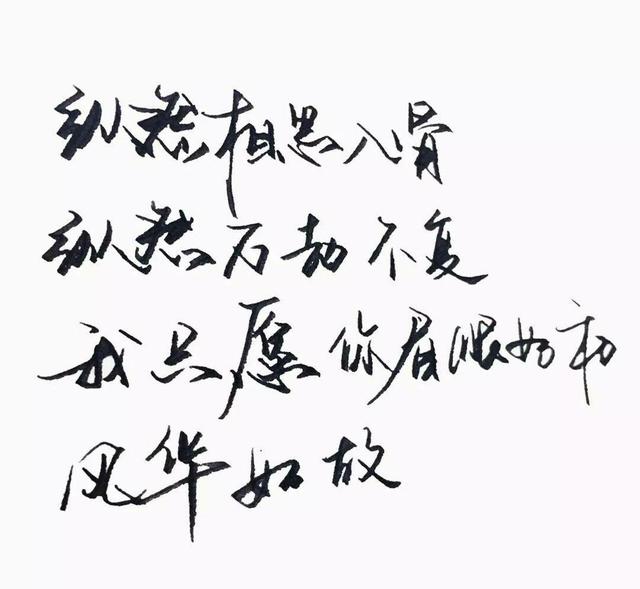 纵然相思入骨
纵然万劫不复
我只愿你眉眼如初
风华如故